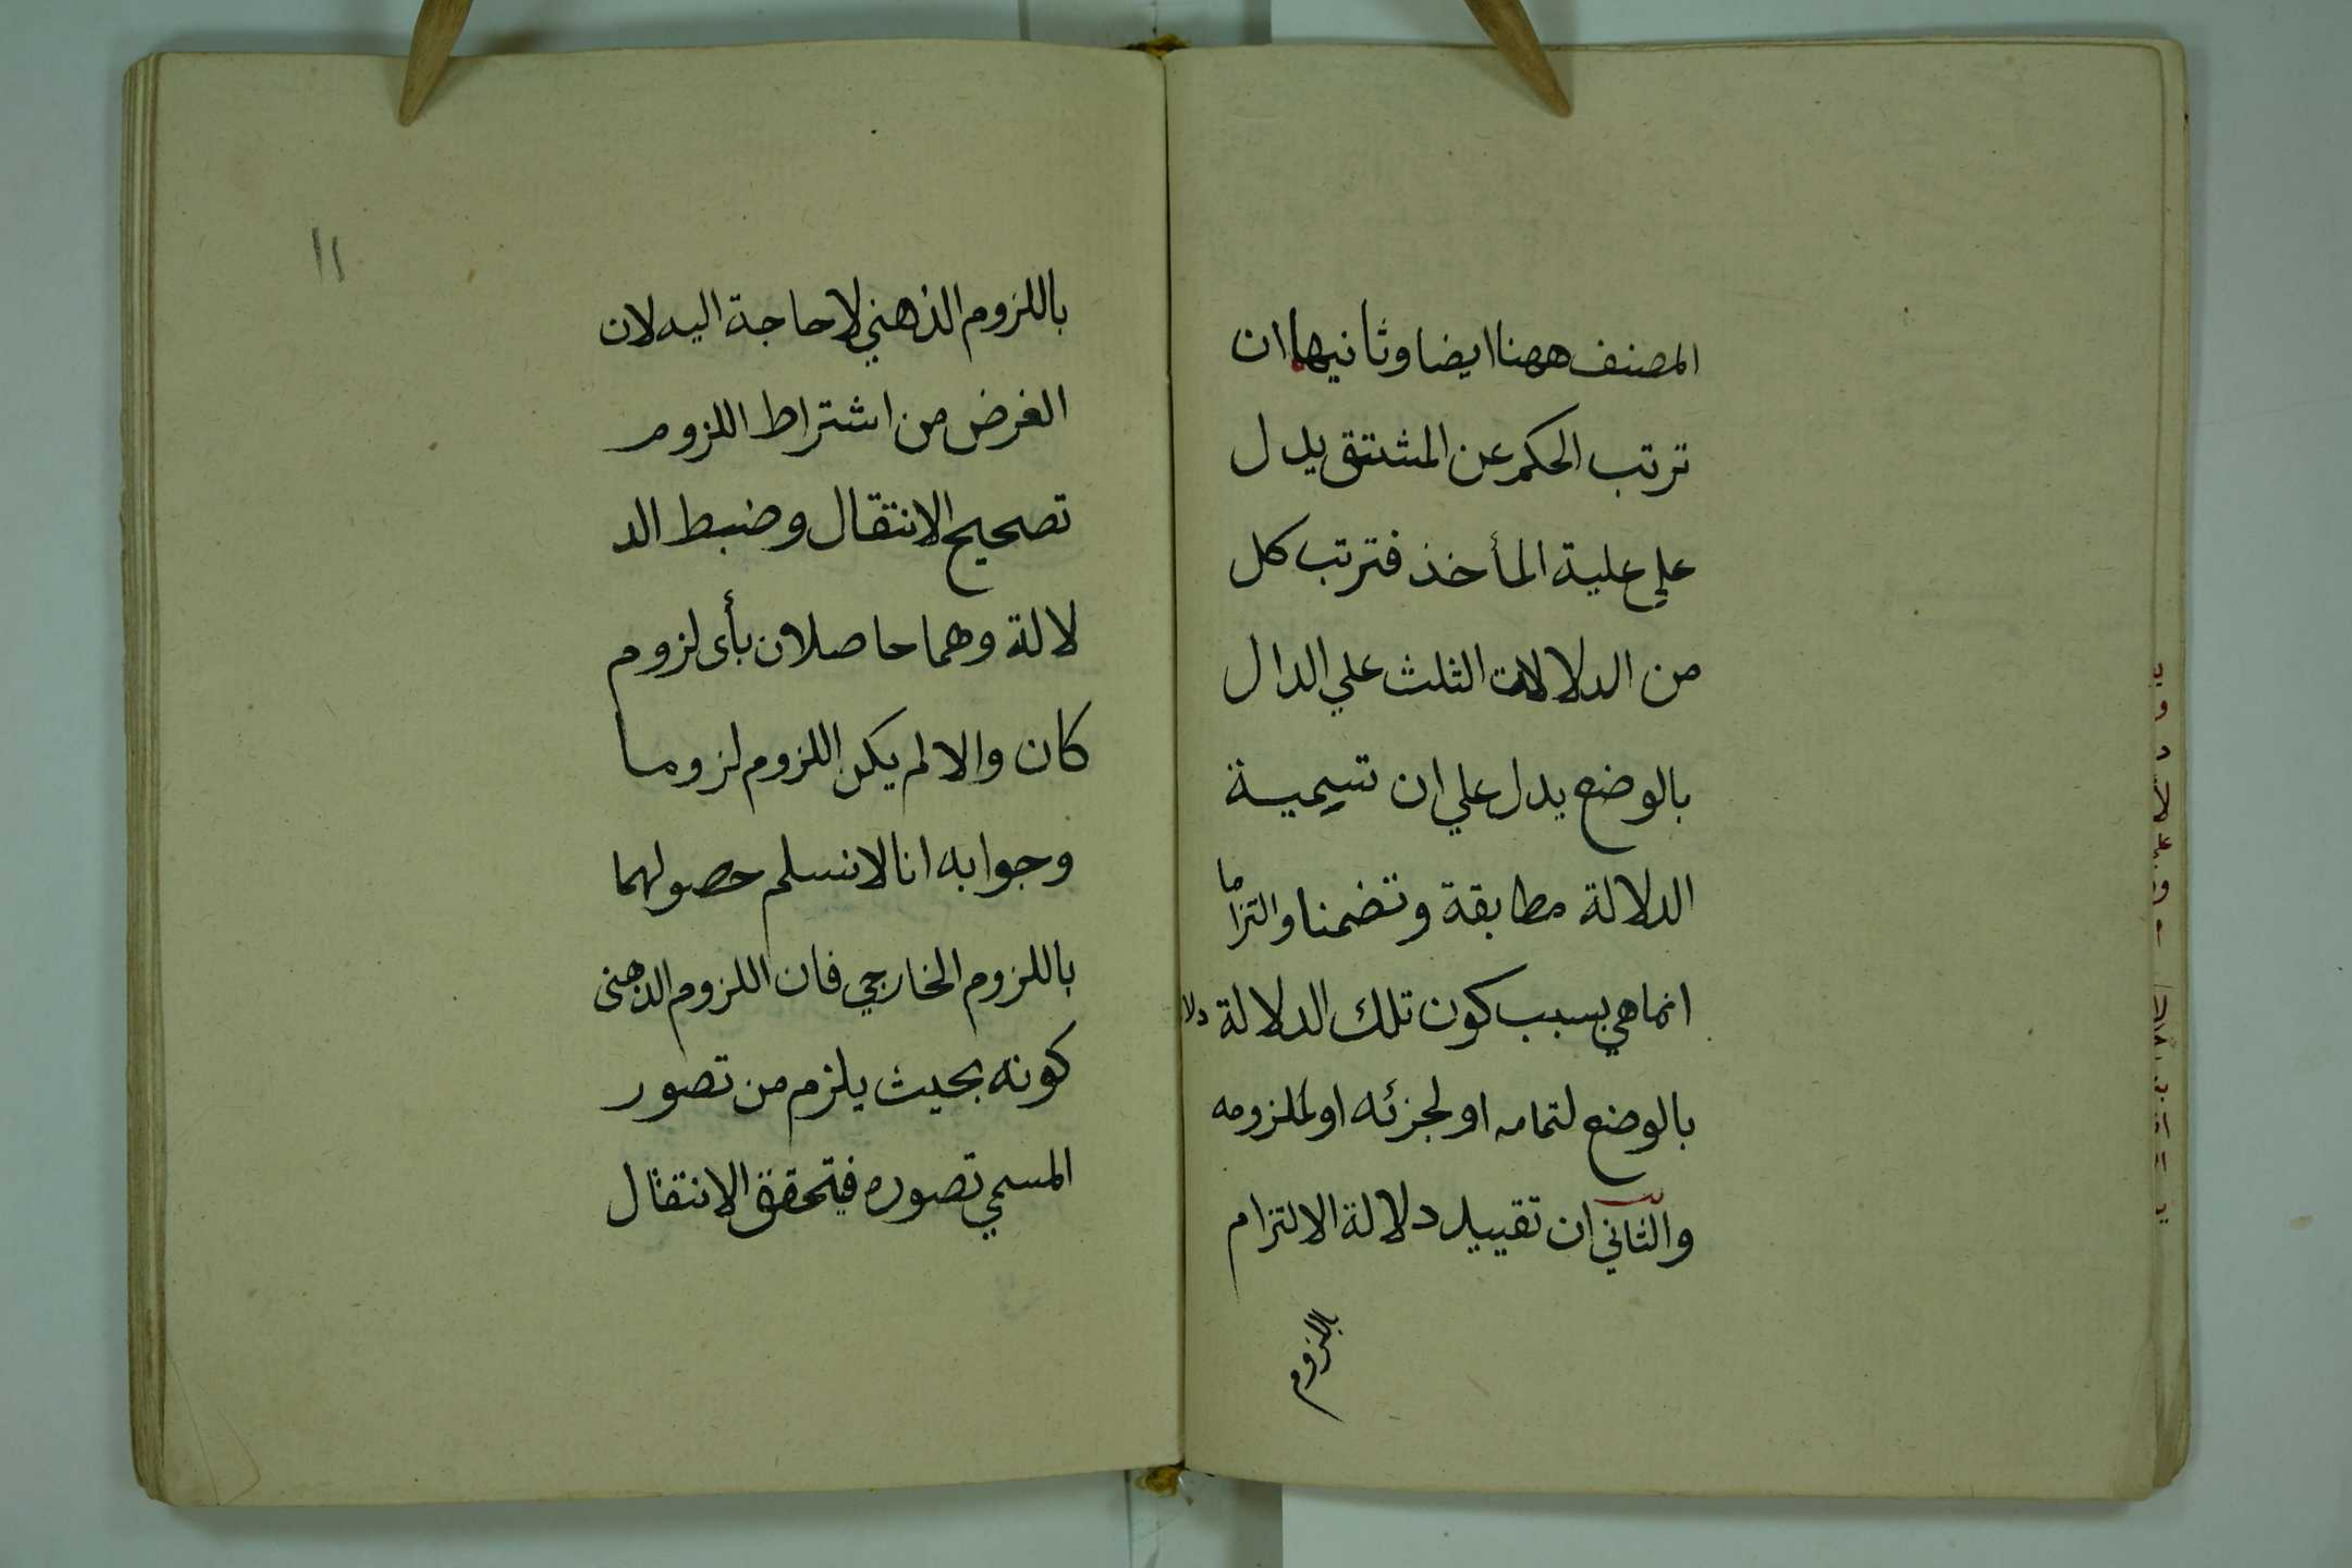 المصنف ههنا ايضا وثانيها ان
ترتب الحكم عن المشتق يدل
علي علية المأخذ فترتب كل
من الدلالات الثلث علي الدال
بالوضع يدل علي ان تسمية
الدلالة مطابقة وتضمنا والتزاما
انما هي بسبب كون تلك الدلالة دلا
بالوضع لتمامه او لجزئه او لملزومه
والثاني ان تقييد دلالة الالتزام
باللزوم
١١
باللزوم الذهني لا حاجة اليه لان
الغرض من اشتراط اللزوم
تصحيح الانتقال وضبط الد
لالة وهما حاصلان بأى لزوم
كان والا لم يكن اللزوم لزوما
وجوابه انا لا نسلم حصولهما
باللزوم الخارجي فان اللزوم الذهنى
كونه بحيث يلزم من تصور
المسمي تصوره فيتحقق الانتقال